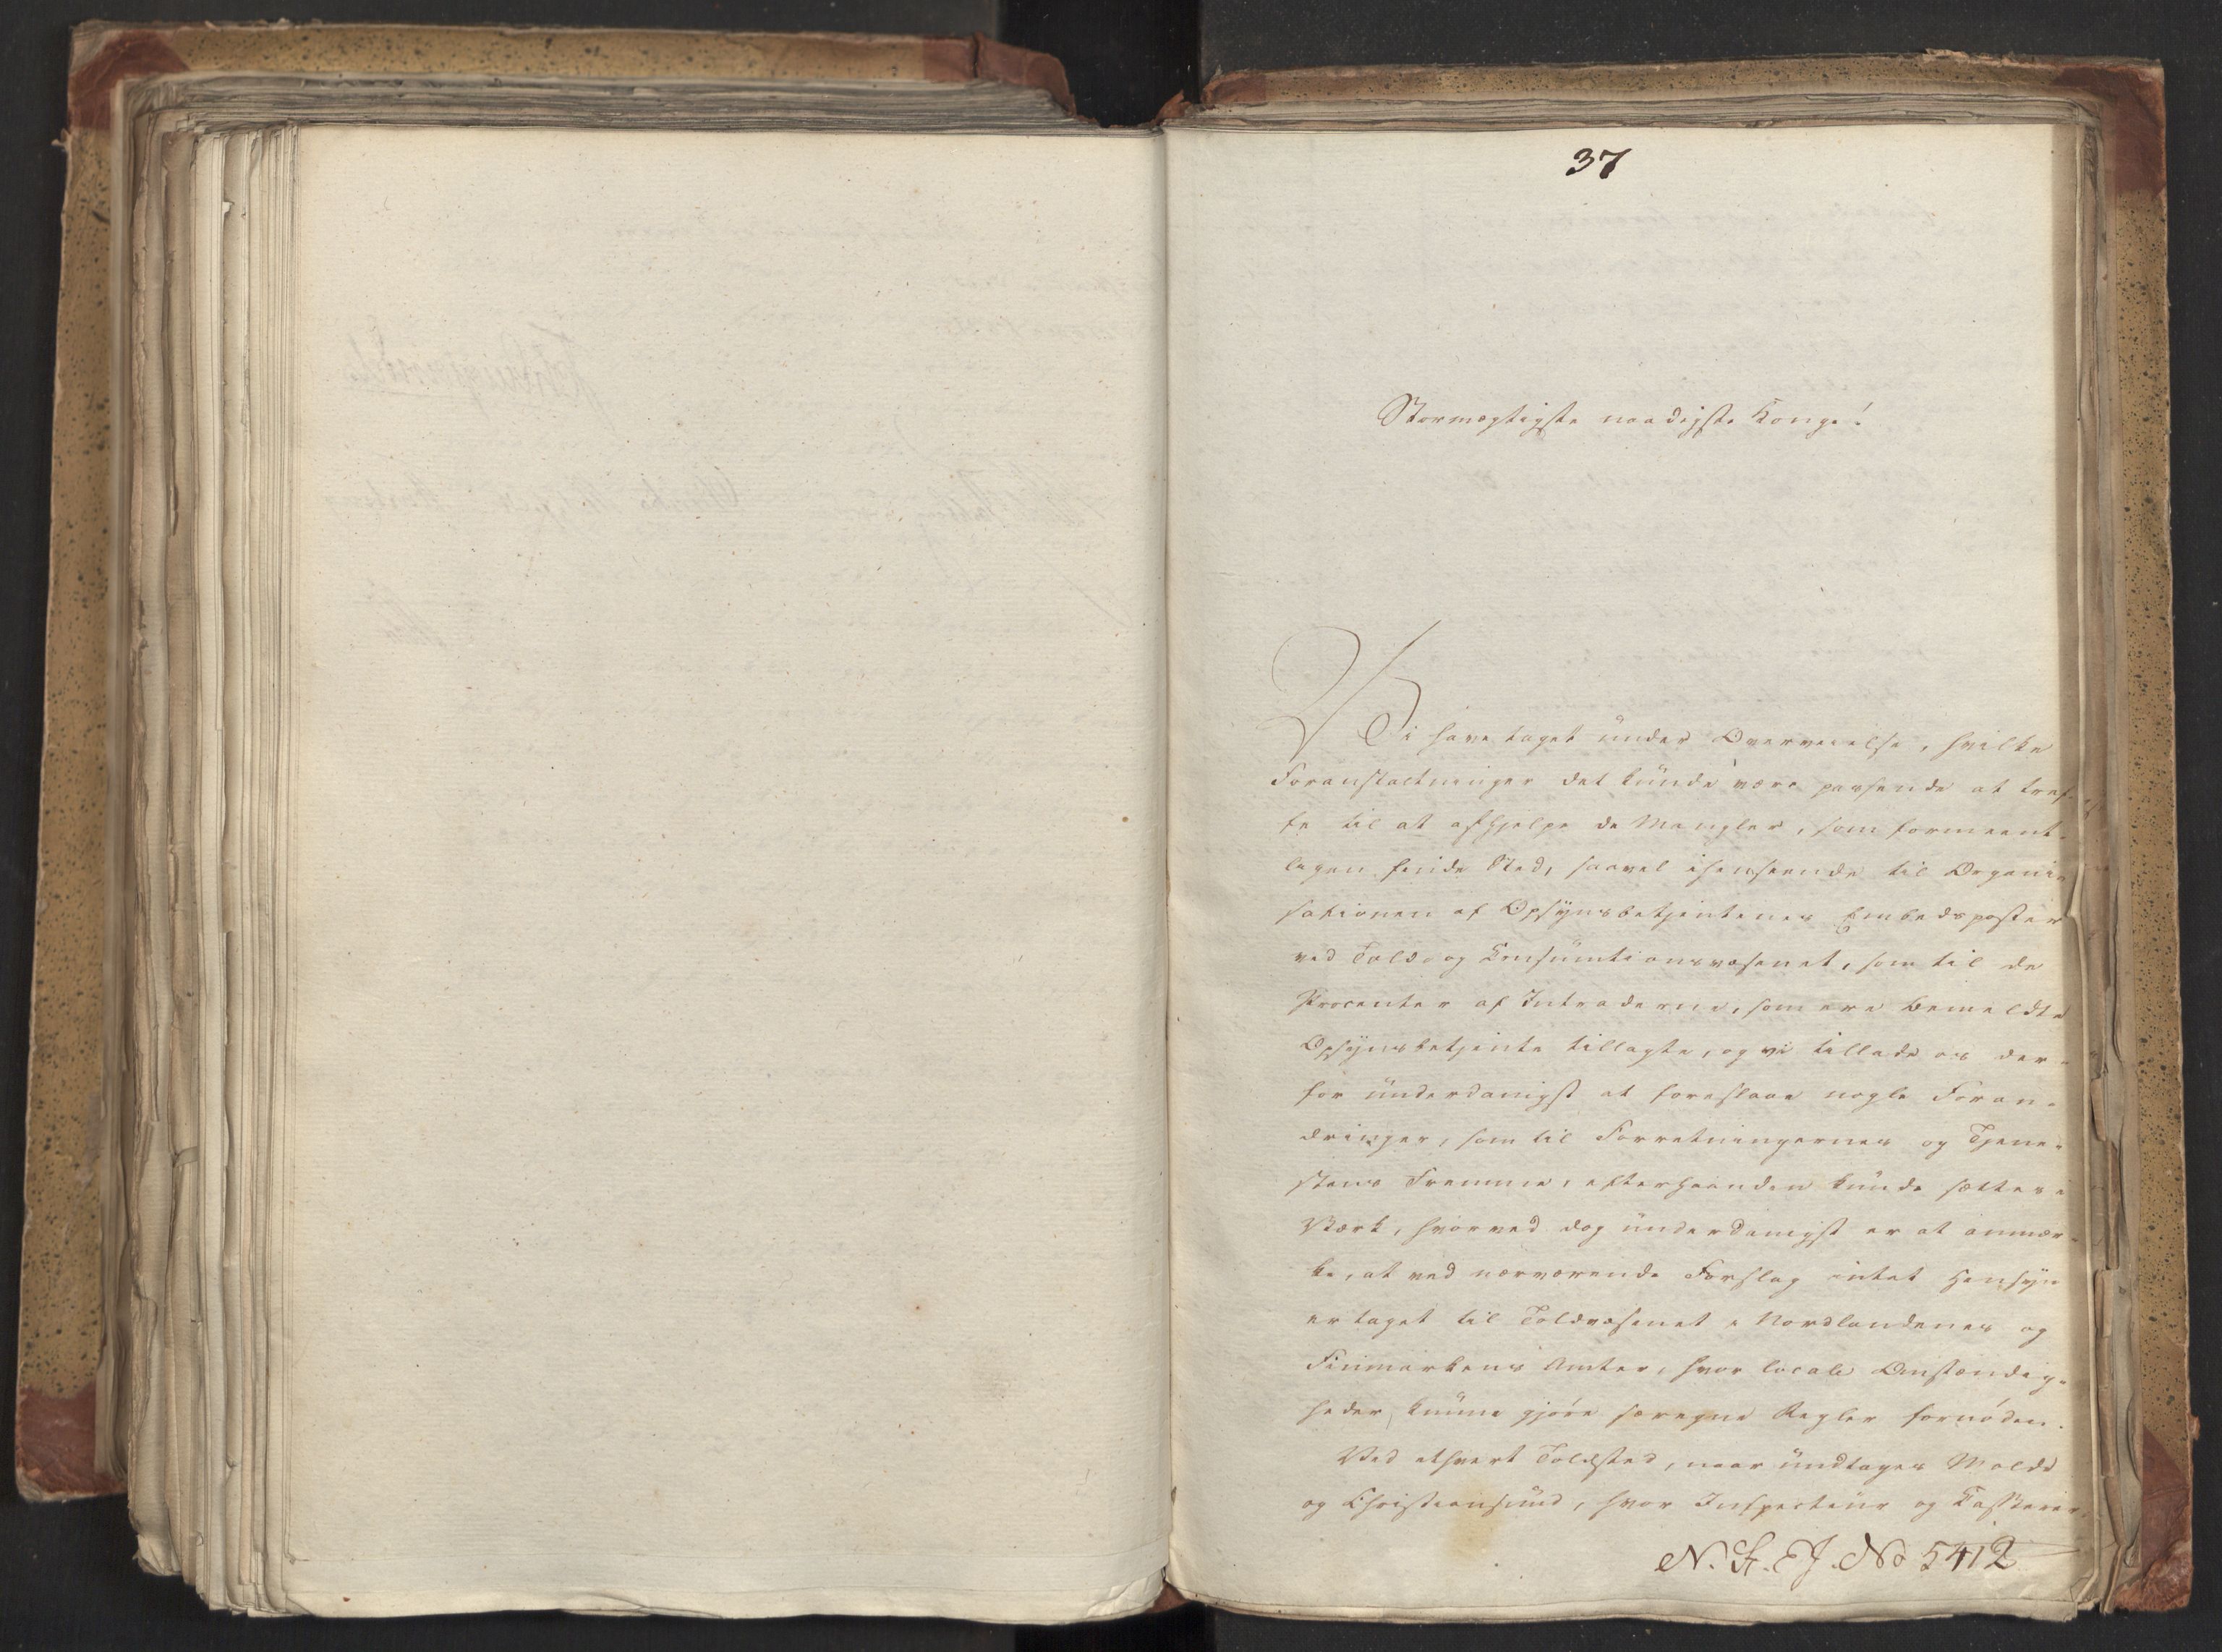 37
Stormægtigste naadigste Konge!
Vi have taget under Overveielse, hvilke
Foranstaltninger det kunde være passende at træf-
fe til at afhjelpe de Mangler, som formeent-
ligen finde Sted, saavel ihenseende til Organi-
sationen af Opsynsbetjentenes Embedsposter
ved Told- og Consumtionsvæsenet, som til de
Procenter af Intraderne, som ere bemeldte
Opsynsbetjente tillagte, og vi tillade os der-
for underdanigst at foreslaae nogle Foran-
dringer, som til Forretningernes og Tjene-
stens Fremme, efterhaanden kunde sættes i
Værk, hvorved dog underdanigst er at anmær-
ke, at ved nærværende Forslag intet Hensyn
er taget til Toldvæsenet i Nordlandenes og
Finmarkens Amter, hvor locale Omstændig-
heder kunne gjöre særegne Regler fornödne.
Ved ethvert Toldsted, naar undtages Molde
og Christiansund, hvor Inspecteur og Casserer
No 5412